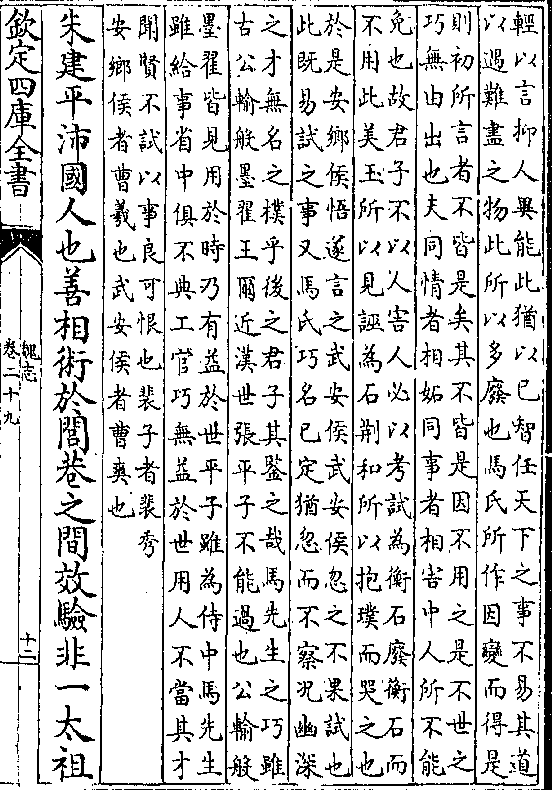 輕以言抑人異能此猶以已智任天下之事不易其道
以遇難盡之物此所以多廢也馬氏所作因變而得是
則初所言者不皆是矣其不皆是因不用之是不世之
巧無由出也夫同情者相妬同事者相害中人所不能
免也故君子不以人害人必以考試為衡石廢衡石而
不用此美玉所以見誣為石荆和所以抱璞而哭之也
於是安鄉侯悟遂言之武安侯武安侯忽之不果試也
此既易試之事又馬氏巧名已定猶忽而不察况幽深
之才無名之樸乎後之君子其鑒之哉馬先生之巧雖
古公輸般墨翟王爾近漢世張平子不能過也公輸般
墨翟皆見用於時乃有益於世平子雖為侍中馬先生
雖給事省中俱不典工官巧無益於世用人不當其才
聞賢不試以事良可恨也裴子者裴秀
安鄉侯者曹羲也武安侯者曹爽也
朱建平沛國人也善相術於閭巷之間效驗非一太祖
欽定四庫全書
魏志
卷二十九
十二